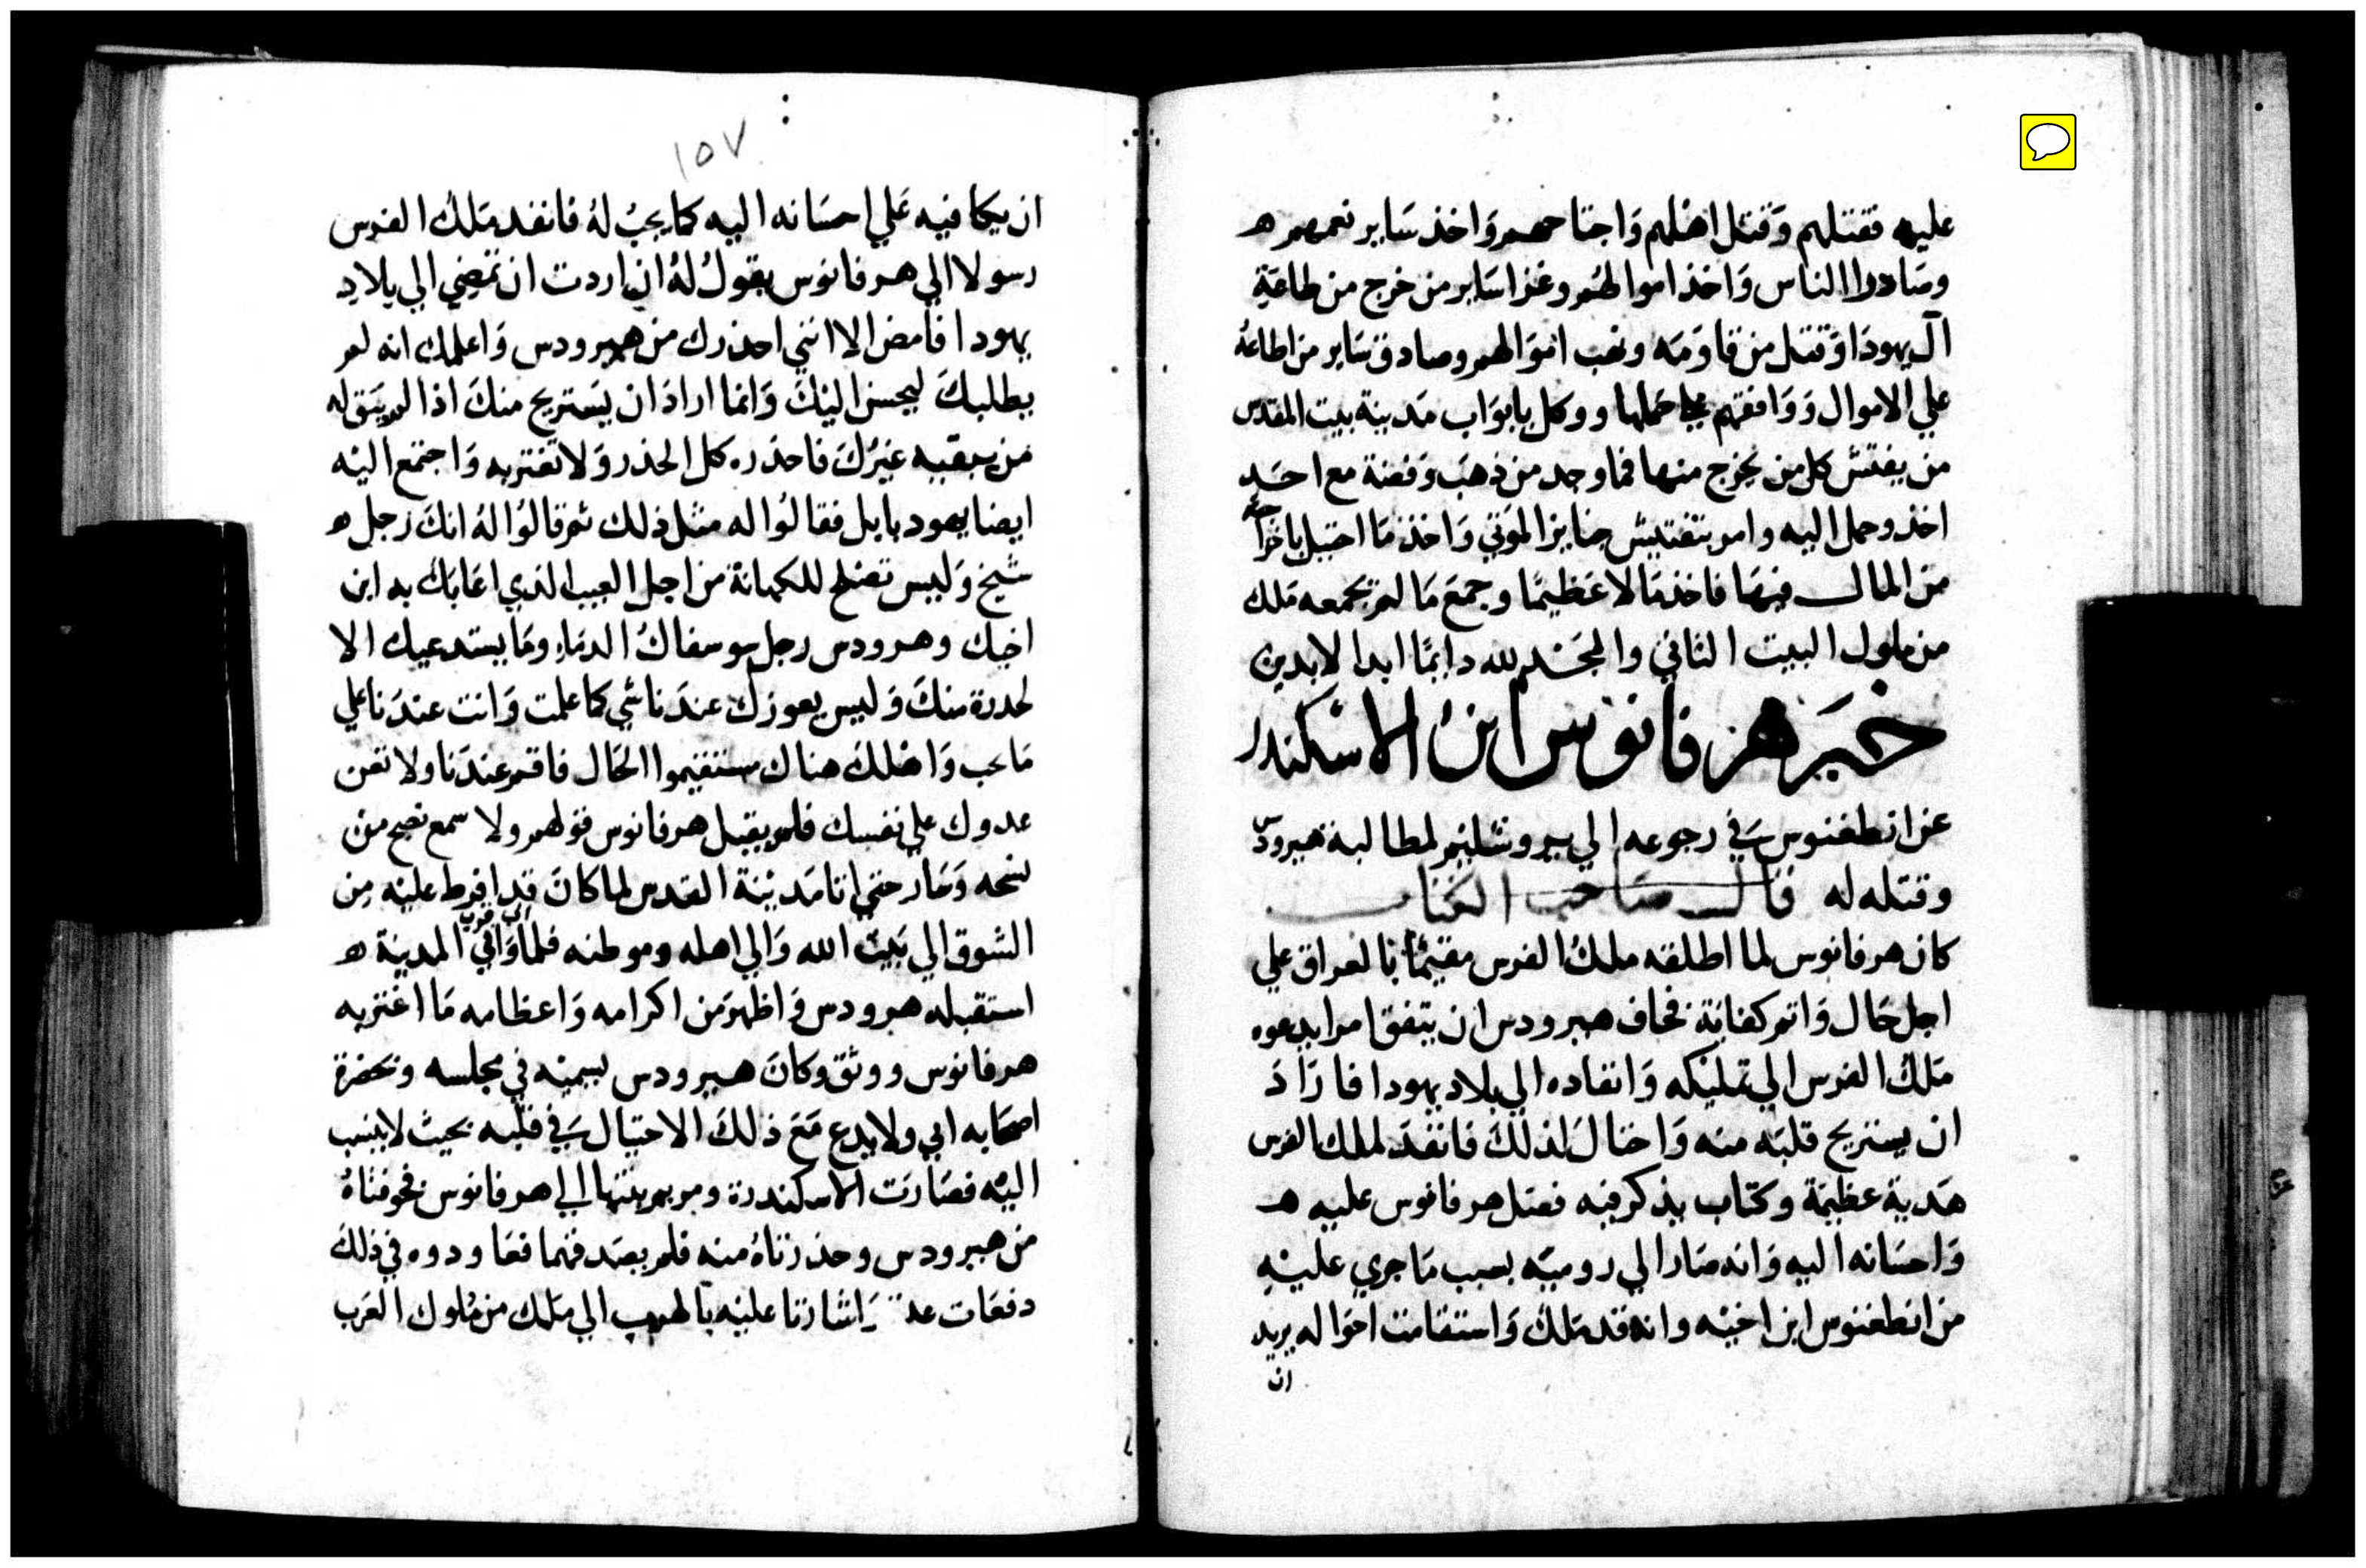 عليه فقتلهم وَقتل اهلهم وَاجتاحهم وَاخذ سَاير نعمهم ه
وصَادروا الناس وَاخذ اموالهُم وغزا سَاير من خرج من طاعَةِ
آل يهودَا وَقتل من قاوَمَه ونهب اموَالهم وصادق سَاير من اطاعهُ
علي الاموال وَوَافقهم علي حملها ووكل بابوَاب مَدينة بيت المقدس
من يفتش كل من يخرج منها فما وجد من ذهَب وَفضة مع احَد
اخذ وحمل اليه وامر بتفتيش جنايز الموَتي وَاخذ مَا احتيل باخراجه
من المال فيهَا فاخذ مَالا عَظيمًا وجمَع مَا لم يجمعه مَلك
من ملوك البيت الثاني والمجَد لله دايمًا ابدا لابدين
خبَر هرفانوس ابن الاسكندر
عن انطغنوس في رجوعه الي يروشليم لمطالبة هيرودس
وقتله له قال صَاحب الكتاب
كان هرفانوس لما اطلقه ملك الفرس مقيمًا بالعراق علي
اجل حَال وَاتم كفاية فخاف هيرودس ان يتفق امر ايدعوه
مَلك الفرس الي تمليكه وَانفاده الي بلاد يهودا فارَادَ
ان يستريح قلبَه منه وَاحتالَ لذلكَ فانفدَ لملك الفرس
هَدية عظيمَة وكتاب يذكر فيه فضل هرفانوس عليه ه
وَاحسَانه اليه وَانه صَار الي روميَه بسبب مَا جري عليْهِ
من انطغنوس ابن اخيْه وانه قد مَلك وَاستقامت احوَاله يريد
ان
١٥٧
ان يكافيه عَلي احسَانه اليه كما يجبُ لهُ فانفد مَلك الفرس
رسولا الي هرفانوس يقولُ لهُ ان اردت ان تمضِي الي بلادِ
يهودا فامض الا انني احذرك من هيرودس وَاعلمك انه لم
يطلبكَ ليحسن اليْكَ وَانما ارادَ ان يسَتريح منكَ اذا لم يَبق له
من يبقيه غيْركَ فاحذره كل الحذر وَلا تغتر به وَاجتمع اليْه
ايضا يهود بابل فقالوُا له مثل ذلك ثم قالوُا لهُ انكَ رَجل ه
شيخ وَليس تصلح للكهانَة من اجل العيب الذي اعَابَك به ابن
اخيك وهرودس رجل سو سفاكُ الدمَاءِ ومَا يستدعيك الا
لحدرة منكَ وَليس يعوزك عندَنا شي كما علمت وَانت عندَنا علي
مَا يحب وَاهْلكَ هناك مستقيموا الحَال فاقم عندَنا ولا تعن
عدوك علي نفسك فلم يقبل هرفانوس قولهم ولا سمع نصح من
نصحه وَسَار حتي اتا مَديْنة القدس لما كانَ قد افرط عليْه مِن
الشوق الي بَيت الله وَالي اهله وموطنه فلما وَافي الي قرب المدينة ه
استقبله هرودس وَاظهرَ من اكرامه وَاعظامه مَا اغتر به
هرفانوس ووثق وكانَ هيرودس يسميْه في مجلسه وبحضرة
اصحَابه ابي ولا يدع مَعَ ذلكَ الاحتيال في قلبه بحيث لا ينسب
اليْه فصَارَت الاسكندرة ومريم بنتها الي هرفانوس فخوفتاهُ
من هيرودس وحذرتاهُ منه فلم يصدقهما فعَاودوه في ذلك
دفعَات عدة وَاشارتا عليْه بالهرب الي مَلك من مُلوك العَرب